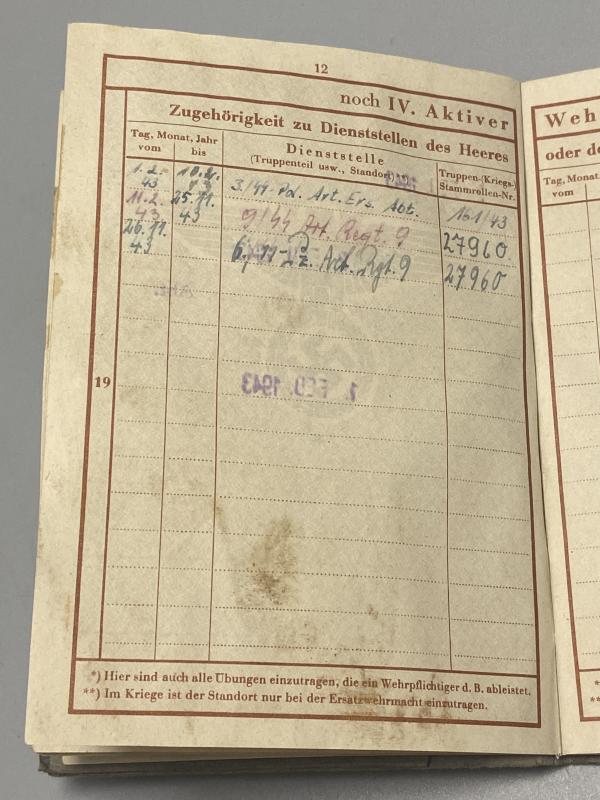 12
noch IV. Aktiver
Zugehörigkeit zu Dienststellen des Heeres
Tag, Monat, Jahr
vom bis
Dienststelle
(Truppenteil usw., Standort)
Truppen-(Kriegs-)
Stammrollen-Nr.
1.2. 43 3/44-Pol. Art. Ers. Abt. 161/43
11.2. 43 25.11. 43 9/44 Art. Regt. 9 27960.
26.11. 43 6./44-Pz. Art. Rgt. 9 27960
1. FEB. 1943
19
*) Hier sind auch alle Übungen einzutragen, die ein Wehrpflichtiger d. B. ableistet.
**) Im Kriege ist der Standort nur bei der Ersatzwehrmacht einzutragen.
Weh
oder de
Tag, Monat,
vom
*
**